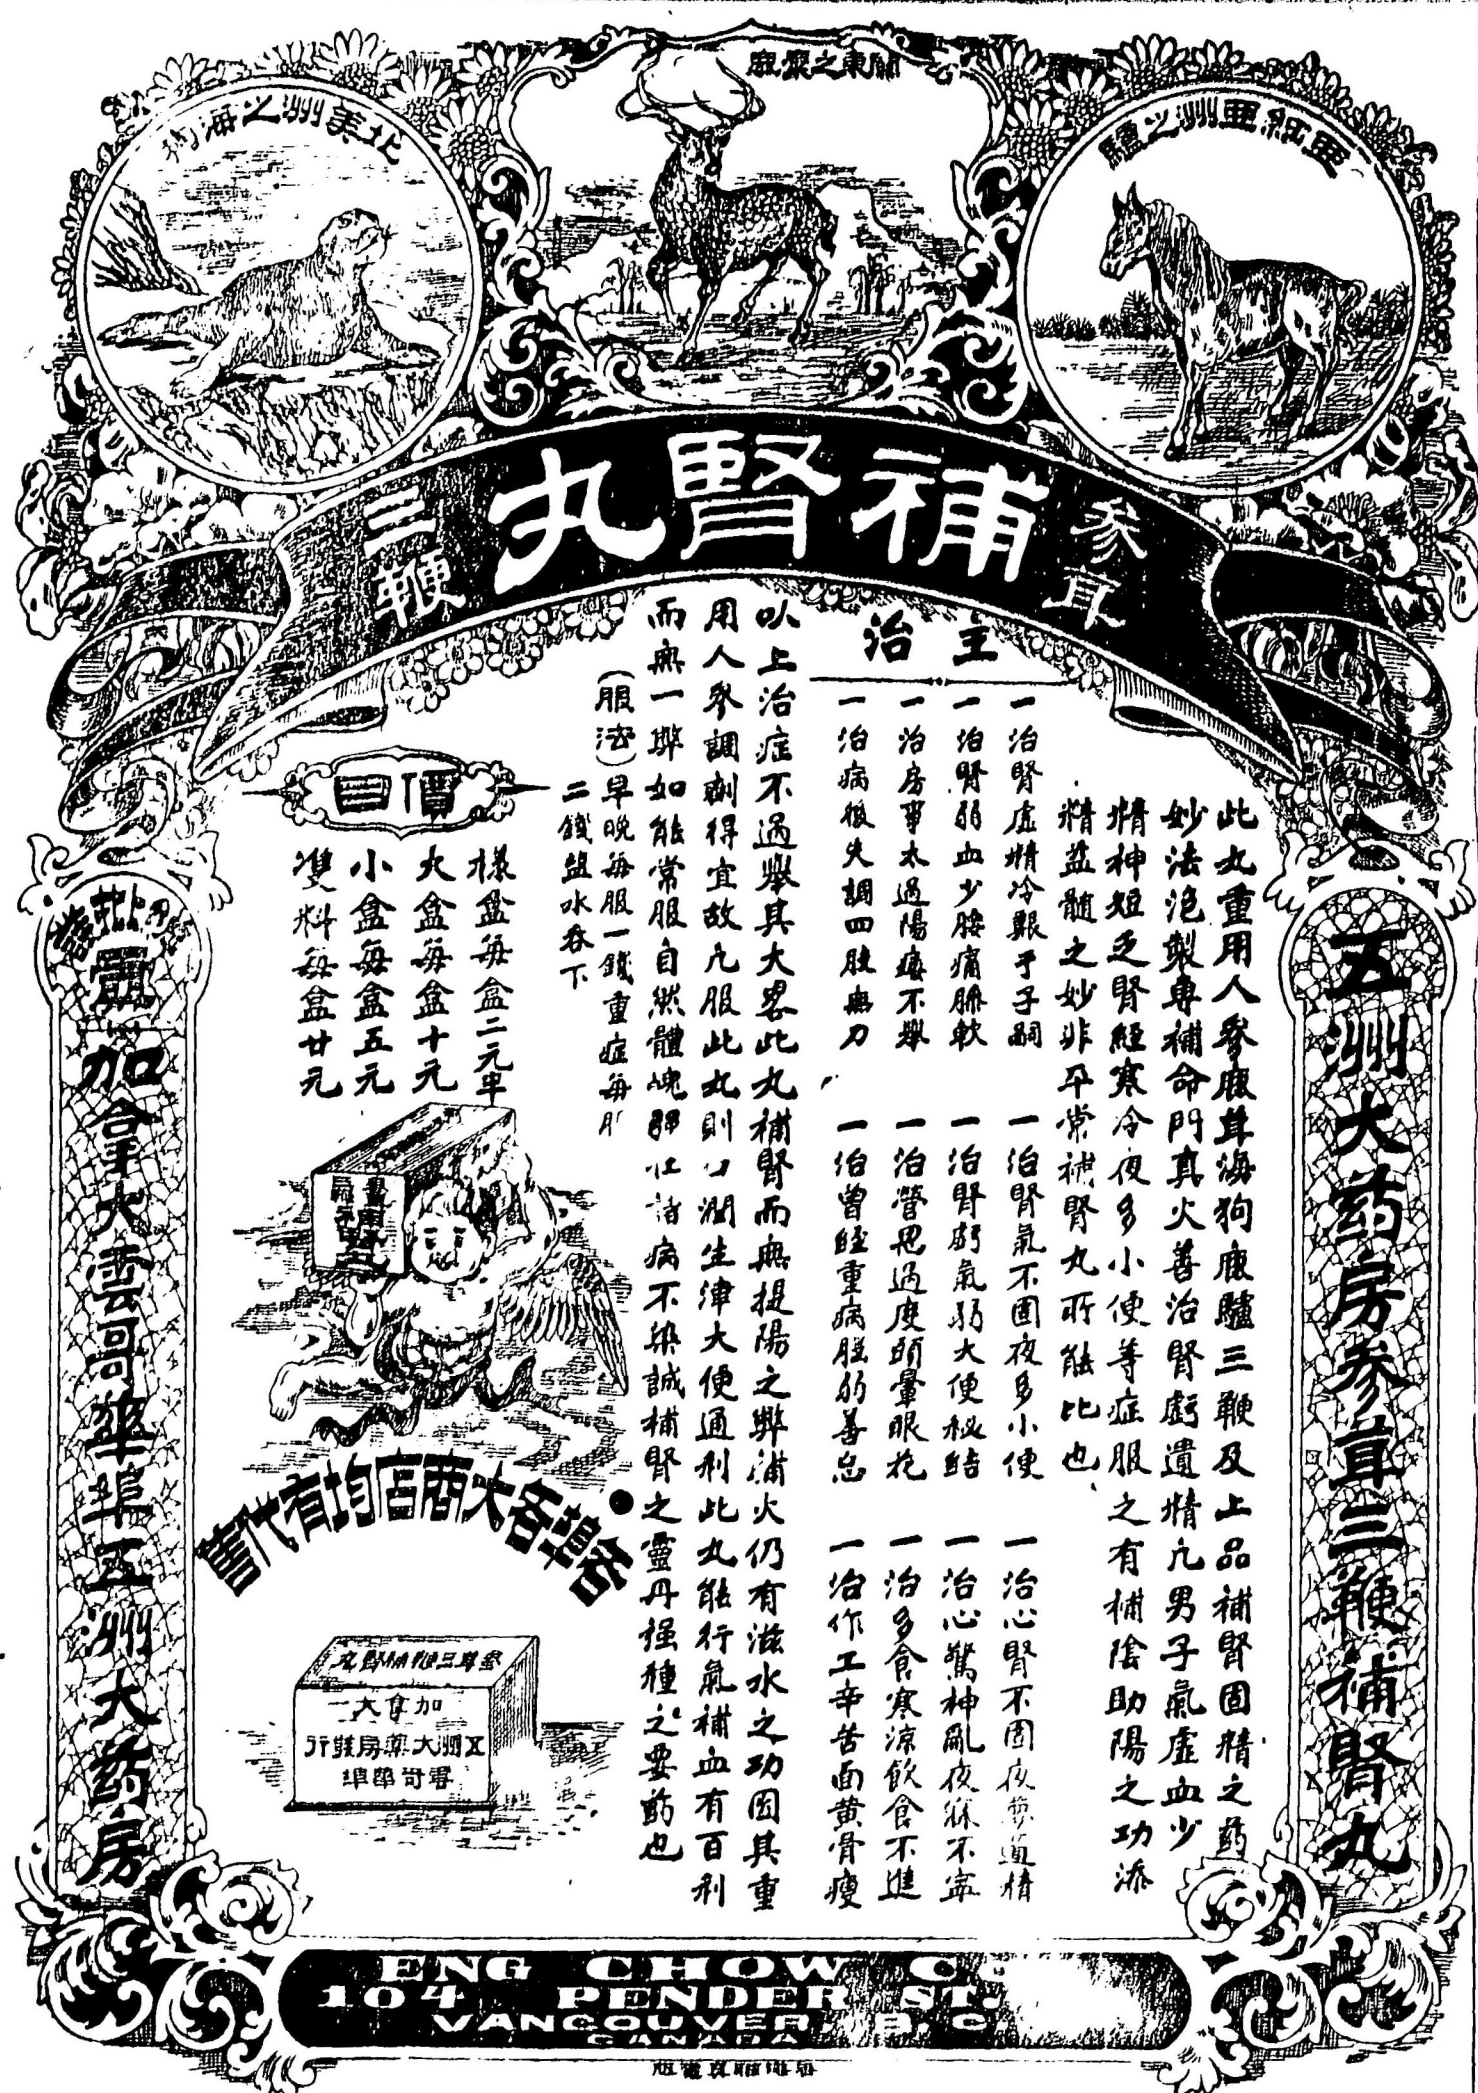 北美洲之海狗
關東之梅鹿
亞細亞洲之驢
參茸
補腎丸
三鞭
五洲大药房參茸三鞭補腎丸
此丸重用人參鹿茸海狗鹿驢三鞭及上品補腎固精之葯
妙法泡製專補命門真火善治腎虧遺精凢男子氣虛血少
精神短乏腎經寒冷夜多小便等症服之有補陰助陽之功添
精益髓之妙非平常補腎丸所能比也
主治
一治腎虛精冷艱于子嗣
一治腎氣不固夜多小便
一治心腎不固夜夢遺精
一治腎弱血少腰痛脚軟
一治腎虧氣弱大便秘結
一治心驚神亂夜寐不寧
一治房事太過陽痿不舉
一治營思過度頭暈眼花
一治多食寒涼飲食不進
一治病後失調四肢無力
一治曾經重病胜弱善忘
一治作工辛苦面黄骨瘦
以上治症不過舉其大畧此丸補腎而無提陽之弊滿火仍有滋水之功因其重
用人參調劑得宜故凢服此丸則口潤生津大便通利此丸能行氣補血有百利
而無一弊如能常服自然體魄壯諸病不染誠補腎之靈丹强種之要葯也
(服法)早晚每服一錢重症每服
二錢盐水吞下
價目
樣盒每盒二元半
大盒每盒十元
小盒每盒五元
雙料每盒廿元
各埠各大商店均有代售
參茸三鞭補腎丸
加拿大
五洲大藥房發行
雲哥華埠
加拿大雲哥華埠五洲大葯房
ENG CHOW
104 PENDER ST.
VANCOUVER, B.C.
CANADA